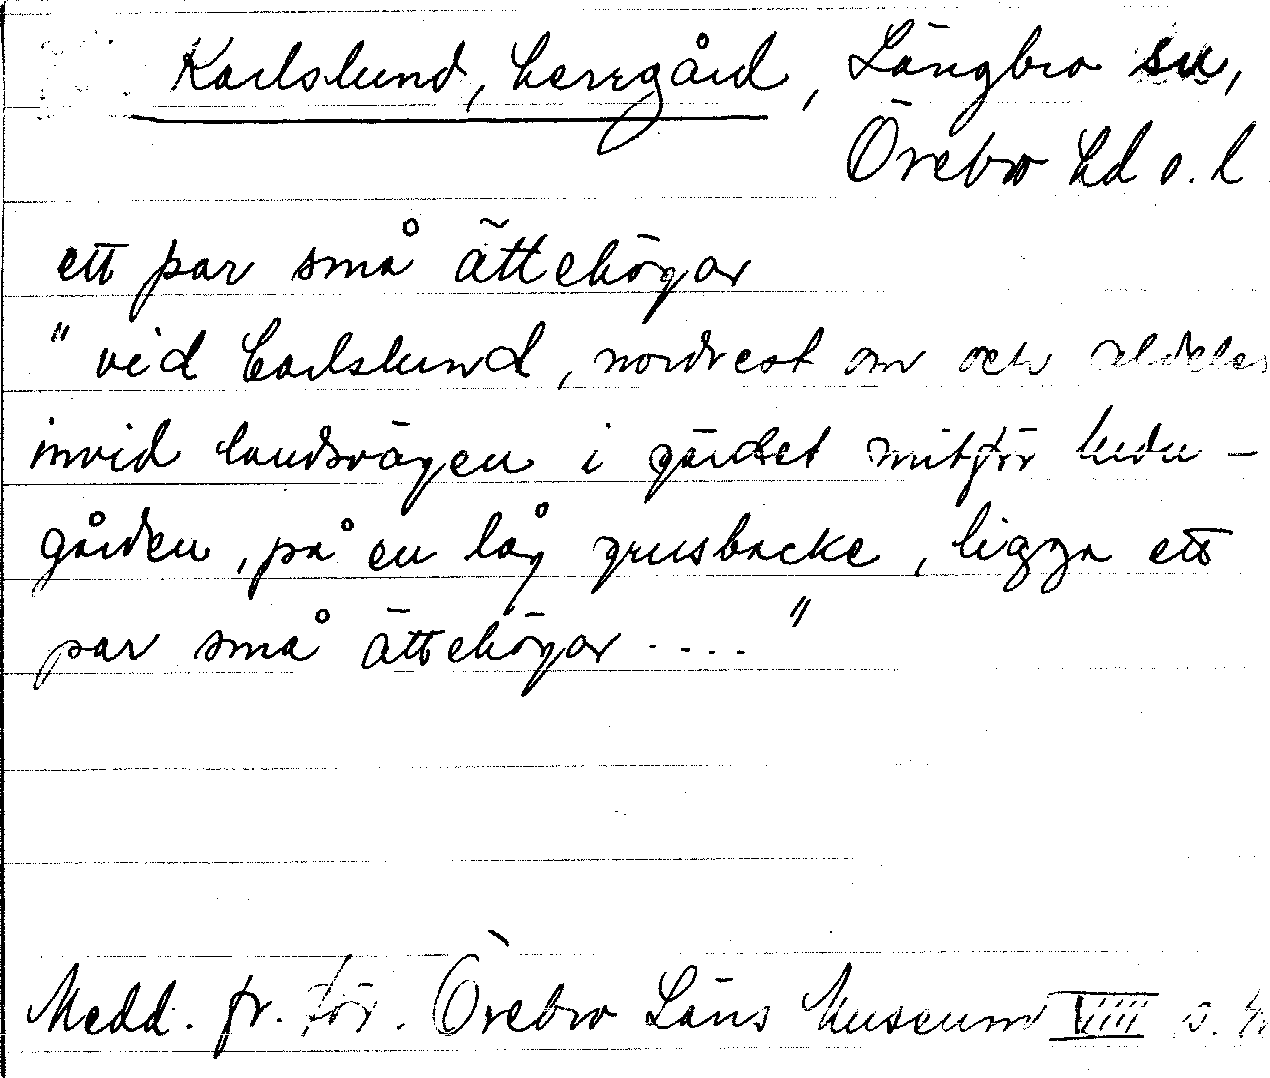 Karlslund, herrgård, Längbro sn,
Örebro hd o. l
ett par små ättehögar
" vid Carlslund, nordvest om och alldeles
invid landsvägen i gärdet mitför ladu-
gården, på en låg grusbacke, ligga ett
par små ättehögar . . . . "
Medd. fr. för. Örebro Läns Museum VIII s.